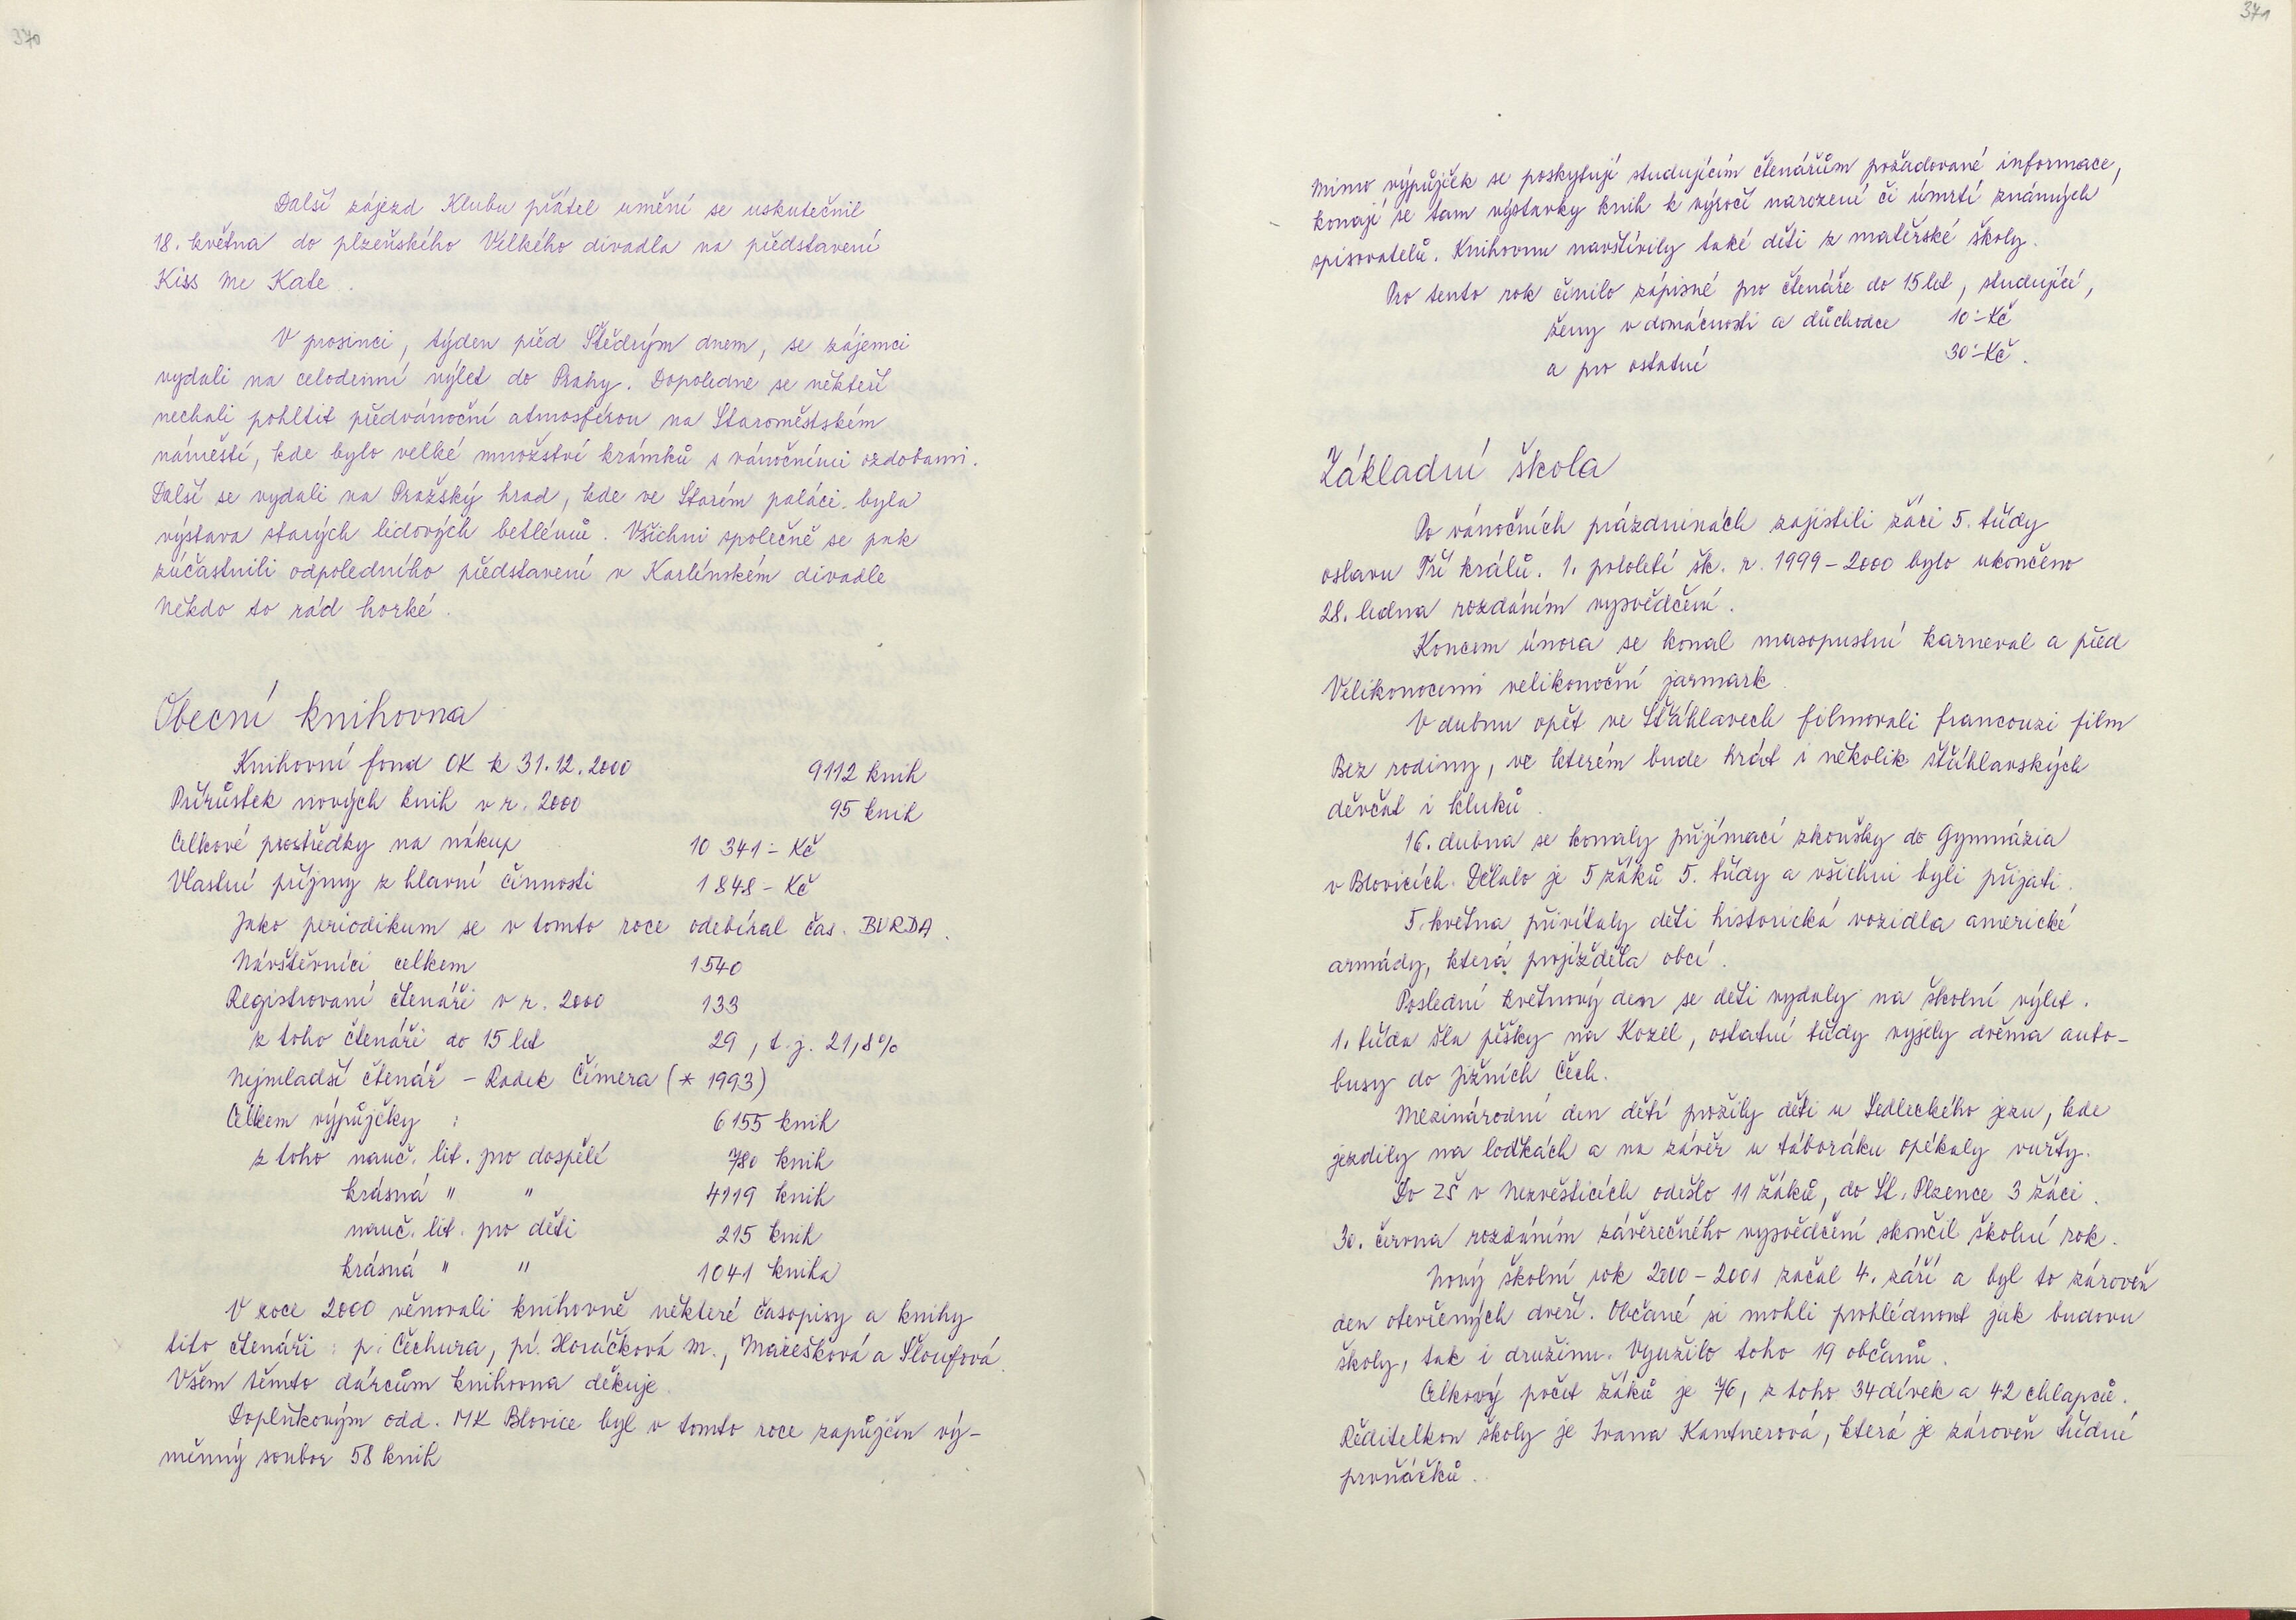 370
Další zájezd Klubu přátel umění se uskutečnil
18. května do plzeňského Velkého divadla na představení
Kiss Me Kate.
V prosinci, týden před Štědrým dnem, se zájemci
vydali na celodenní výlet do Prahy. Dopoledne se někteří
nechali pohltit předvánoční atmosférou na Staroměstském
náměstí, kde bylo velké množství krámků s vánočními ozdobami.
Další se vydali na Pražský hrad, kde ve Starém paláci byla
výstava starých lidových betlémů. Všichni společně se pak
zúčastnili odpoledního představení v Karlínském divadle
Někdo to rád horké.
Obecní knihovna
Knihovní fond OK k 31.12.2000 9112 knih
Přírůstek nových knih v r. 2000 95 knih
Celkové prostředky na nákup 10 341.- Kč
Vlastní příjmy z hlavní činnosti 1 848 - Kč
Jako periodikum se v tomto roce odebíral čas. BURDA.
Návštěvníci celkem 1540
Registrovaní čtenáři v r. 2000 133
z toho čtenáři do 15 let 29, t.j. 21,8%
Nejmladší čtenář - Radek Čimera (* 1993)
Celkem výpůjčky : 6 155 knih
z toho nauč. lit. pro dospělé 780 knih
krásná " " 4119 knih
nauč. lit. pro děti 215 knih
krásná " " 1041 kniha
V roce 2000 věnovali knihovně některé časopisy a knihy
tito čtenáři : p. Čechura, pí. Horáčková M., Marešková a Šloufová.
Všem těmto dárcům knihovna děkuje.
Doplňkovým odd. MK Blovice byl v tomto roce zapůjčen vý-
měnný soubor 58 knih
371
Mimo výpůjček se poskytují studujícím čtenářům požadované informace,
konají se tam výstavky knih k výročí narození či úmrtí známých
spisovatelů. Knihovnu navštívily také děti z mateřské školy.
Pro tento rok činilo zápisné pro čtenáře do 15 let, studující,
ženy v domácnosti a důchodce 10.- Kč
a pro ostatní 30.- Kč.
Základní škola
Po vánočních prázdninách zajistili žáci 5. třídy
oslavu Tří králů. 1. pololetí šk. r. 1999 - 2000 bylo ukončeno
28. ledna rozdáním vysvědčení.
Koncem února se konal masopustní karneval a před
Velikonocemi velikonoční jarmark
V dubnu opět ve Šťáhlavech filmovali francouzi film
Bez rodiny, ve kterém bude hrát i několik šťáhlavských
děvčat i kluků.
16. dubna se konaly přijímací zkoušky do Gymnázia
v Blovicích. Dělalo je 5 žáků 5. třídy a všichni byli přijati.
5. května přivítaly děti historická vozidla americké
armády, která projížděla obcí.
Poslední květnový den se děti vydaly na školní výlet.
1. třída šla pěšky na Kozel, ostatní třídy vyjely dvěma auto-
busy do Jižních Čech.
Mezinárodní den dětí prožily děti u Sedleckého jezu, kde
jezdily na loďkách a na závěr u táboráku opékaly vuřty.
Do ZŠ v Nezvěsticích odešlo 11 žáků, do St. Plzence 3 žáci.
30. června rozdáním závěrečného vysvědčení skončil školní rok.
Nový školní rok 2000 - 2001 začal 4. září a byl to zároveň
den otevřených dveří. Občané si mohli prohlédnout jak budovu
školy, tak i družinu. Využilo toho 19 občanů.
Celkový počet žáků je 76, z toho 34 dívek a 42 chlapců.
Ředitelkou školy je Ivana Kantnerová, která je zároveň třídní
prvňáčků.